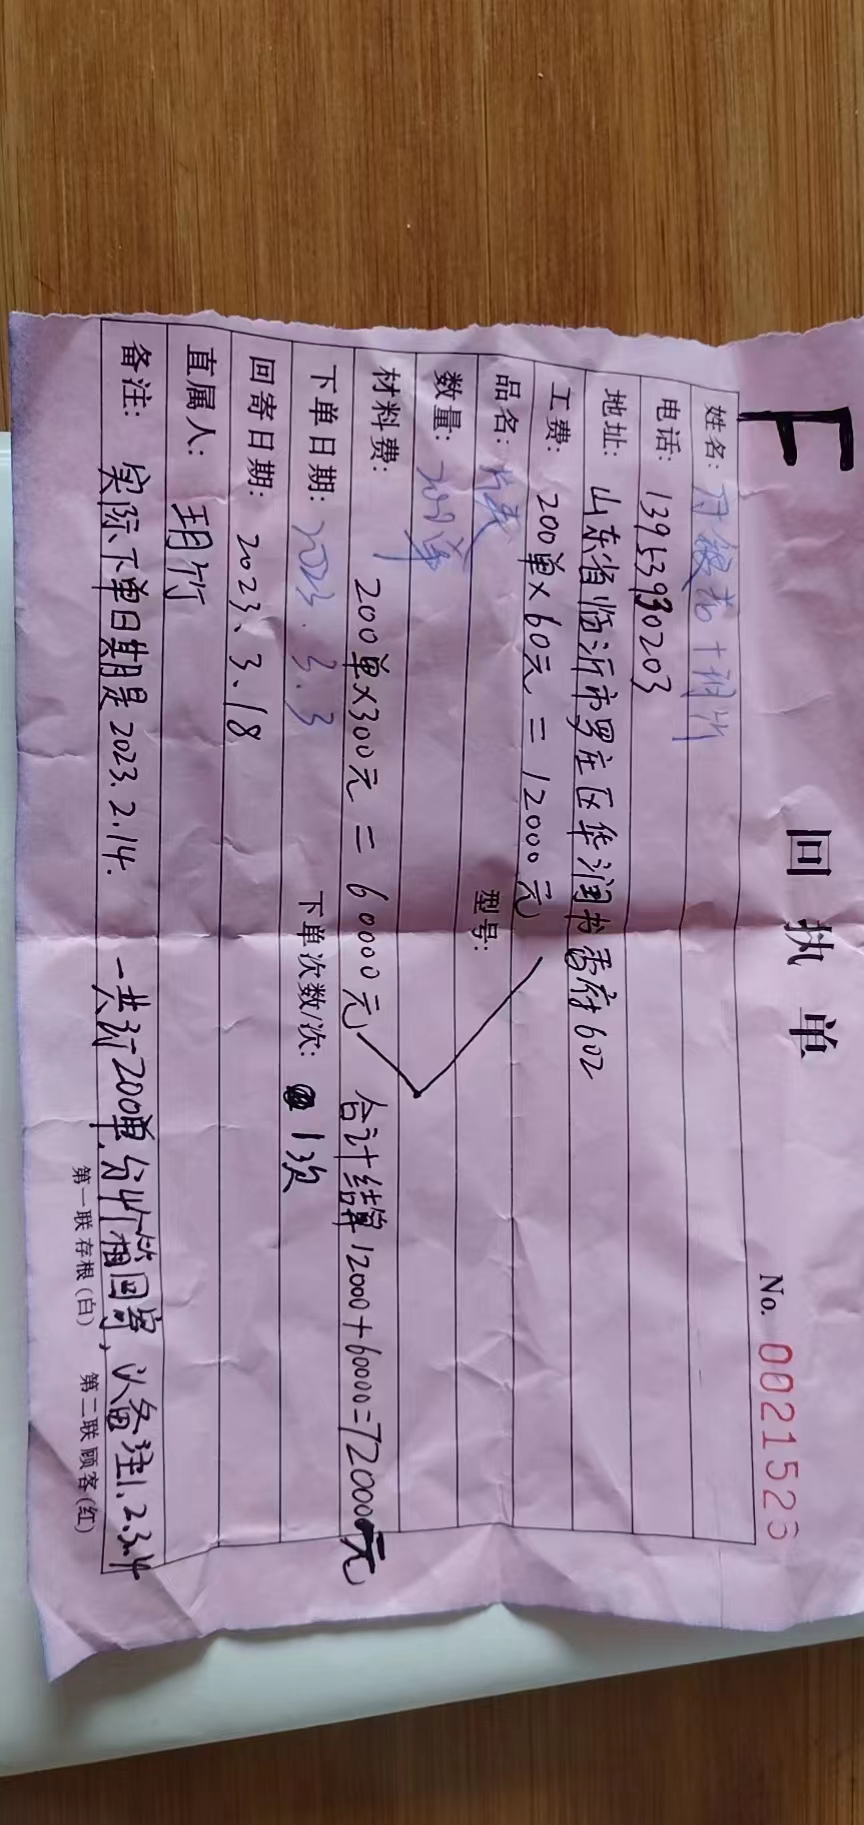 F
回执单
No. 0021526
姓名: 艹+玥竹
电话: 13953930203
地址: 山东省临沂市罗庄区华润书香府602
工费: 200单×60元=12000元
品名: 型号:
数量: 200单
材料费: 200单×300元=60000元 合计结算12000+60000=72000元
下单日期: 2023.3.3 下单次数/次: 1次
回寄日期: 2023.3.18
直属人: 玥竹
备注: 实际下单日期是2023.2.14. 一共订200单,分4个箱回寄,以备注1.2.3.4
第一联存根(白) 第二联顾客(红)